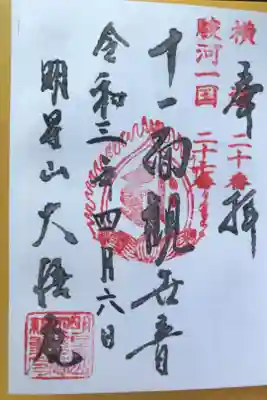 奉拝
横
二十番
駿河一国
二十二番
十一面観世音
令和三年四月六日
明星山大悟庵